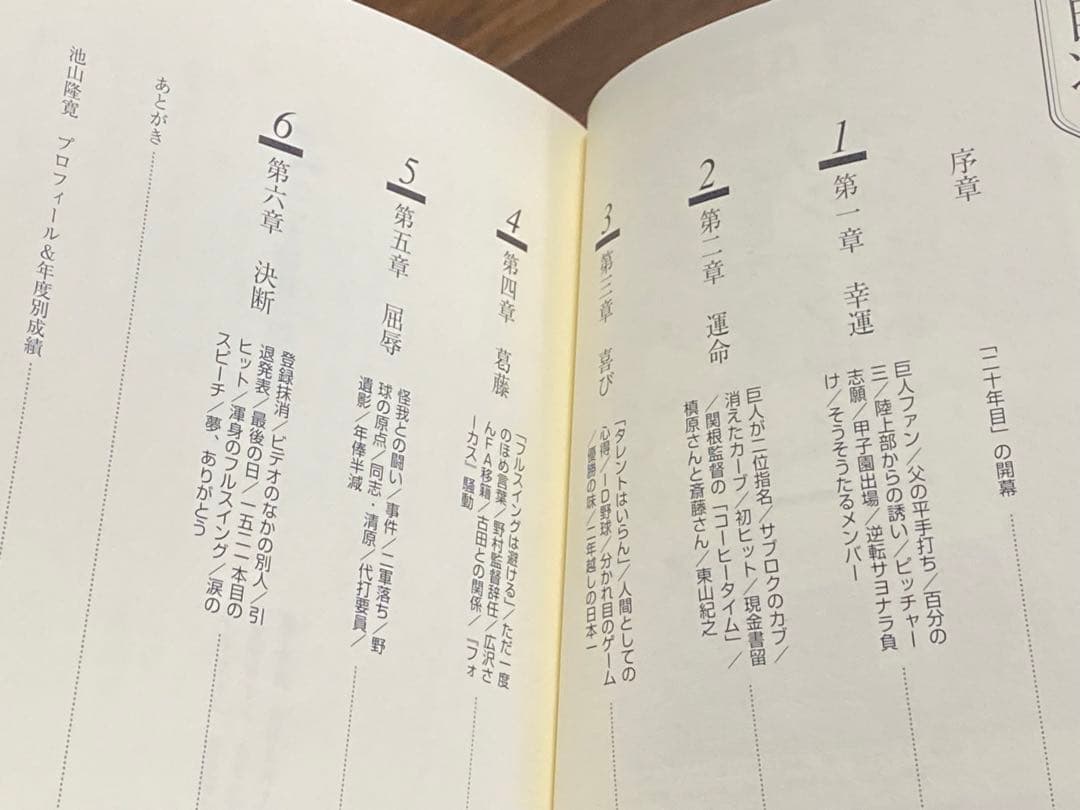 目次
序章
「二十年目」の開幕
1
第一章 幸運
巨人ファン/父の平手打ち/百分の
三/陸上部からの誘い/ピッチャー
志願/甲子園出場/逆転サヨナラ負
け/そうそうたるメンバー
2
第二章 運命
巨人が二位指名/サブロクのカブ/
消えたカーブ/初ヒット/現金書留
/関根監督の「コーヒータイム」/
槙原さんと斎藤さん/東山紀之
3
第三章 喜び
「タレントはいらん」/人間としての
心得/ID野球/分かれ目のゲーム
/優勝の味/二年越しの日本一
4
第四章 葛藤
「フルスイングは避ける」/ただ一度
のほめ言葉/野村監督辞任/広沢さ
んFA移籍/古田との関係/『フォ
ーカス』騒動
5
第五章 屈辱
怪我との闘い/事件/二軍落ち/野
球の原点/同志・清原/代打要員/
遺影/年俸半減
6
第六章 決断
登録抹消/ビデオのなかの別人/引
退発表/最後の日/一五二一本目の
ヒット/渾身のフルスイング/涙の
スピーチ/夢、ありがとう
あとがき
池山隆寛 プロフィール&年度別成績